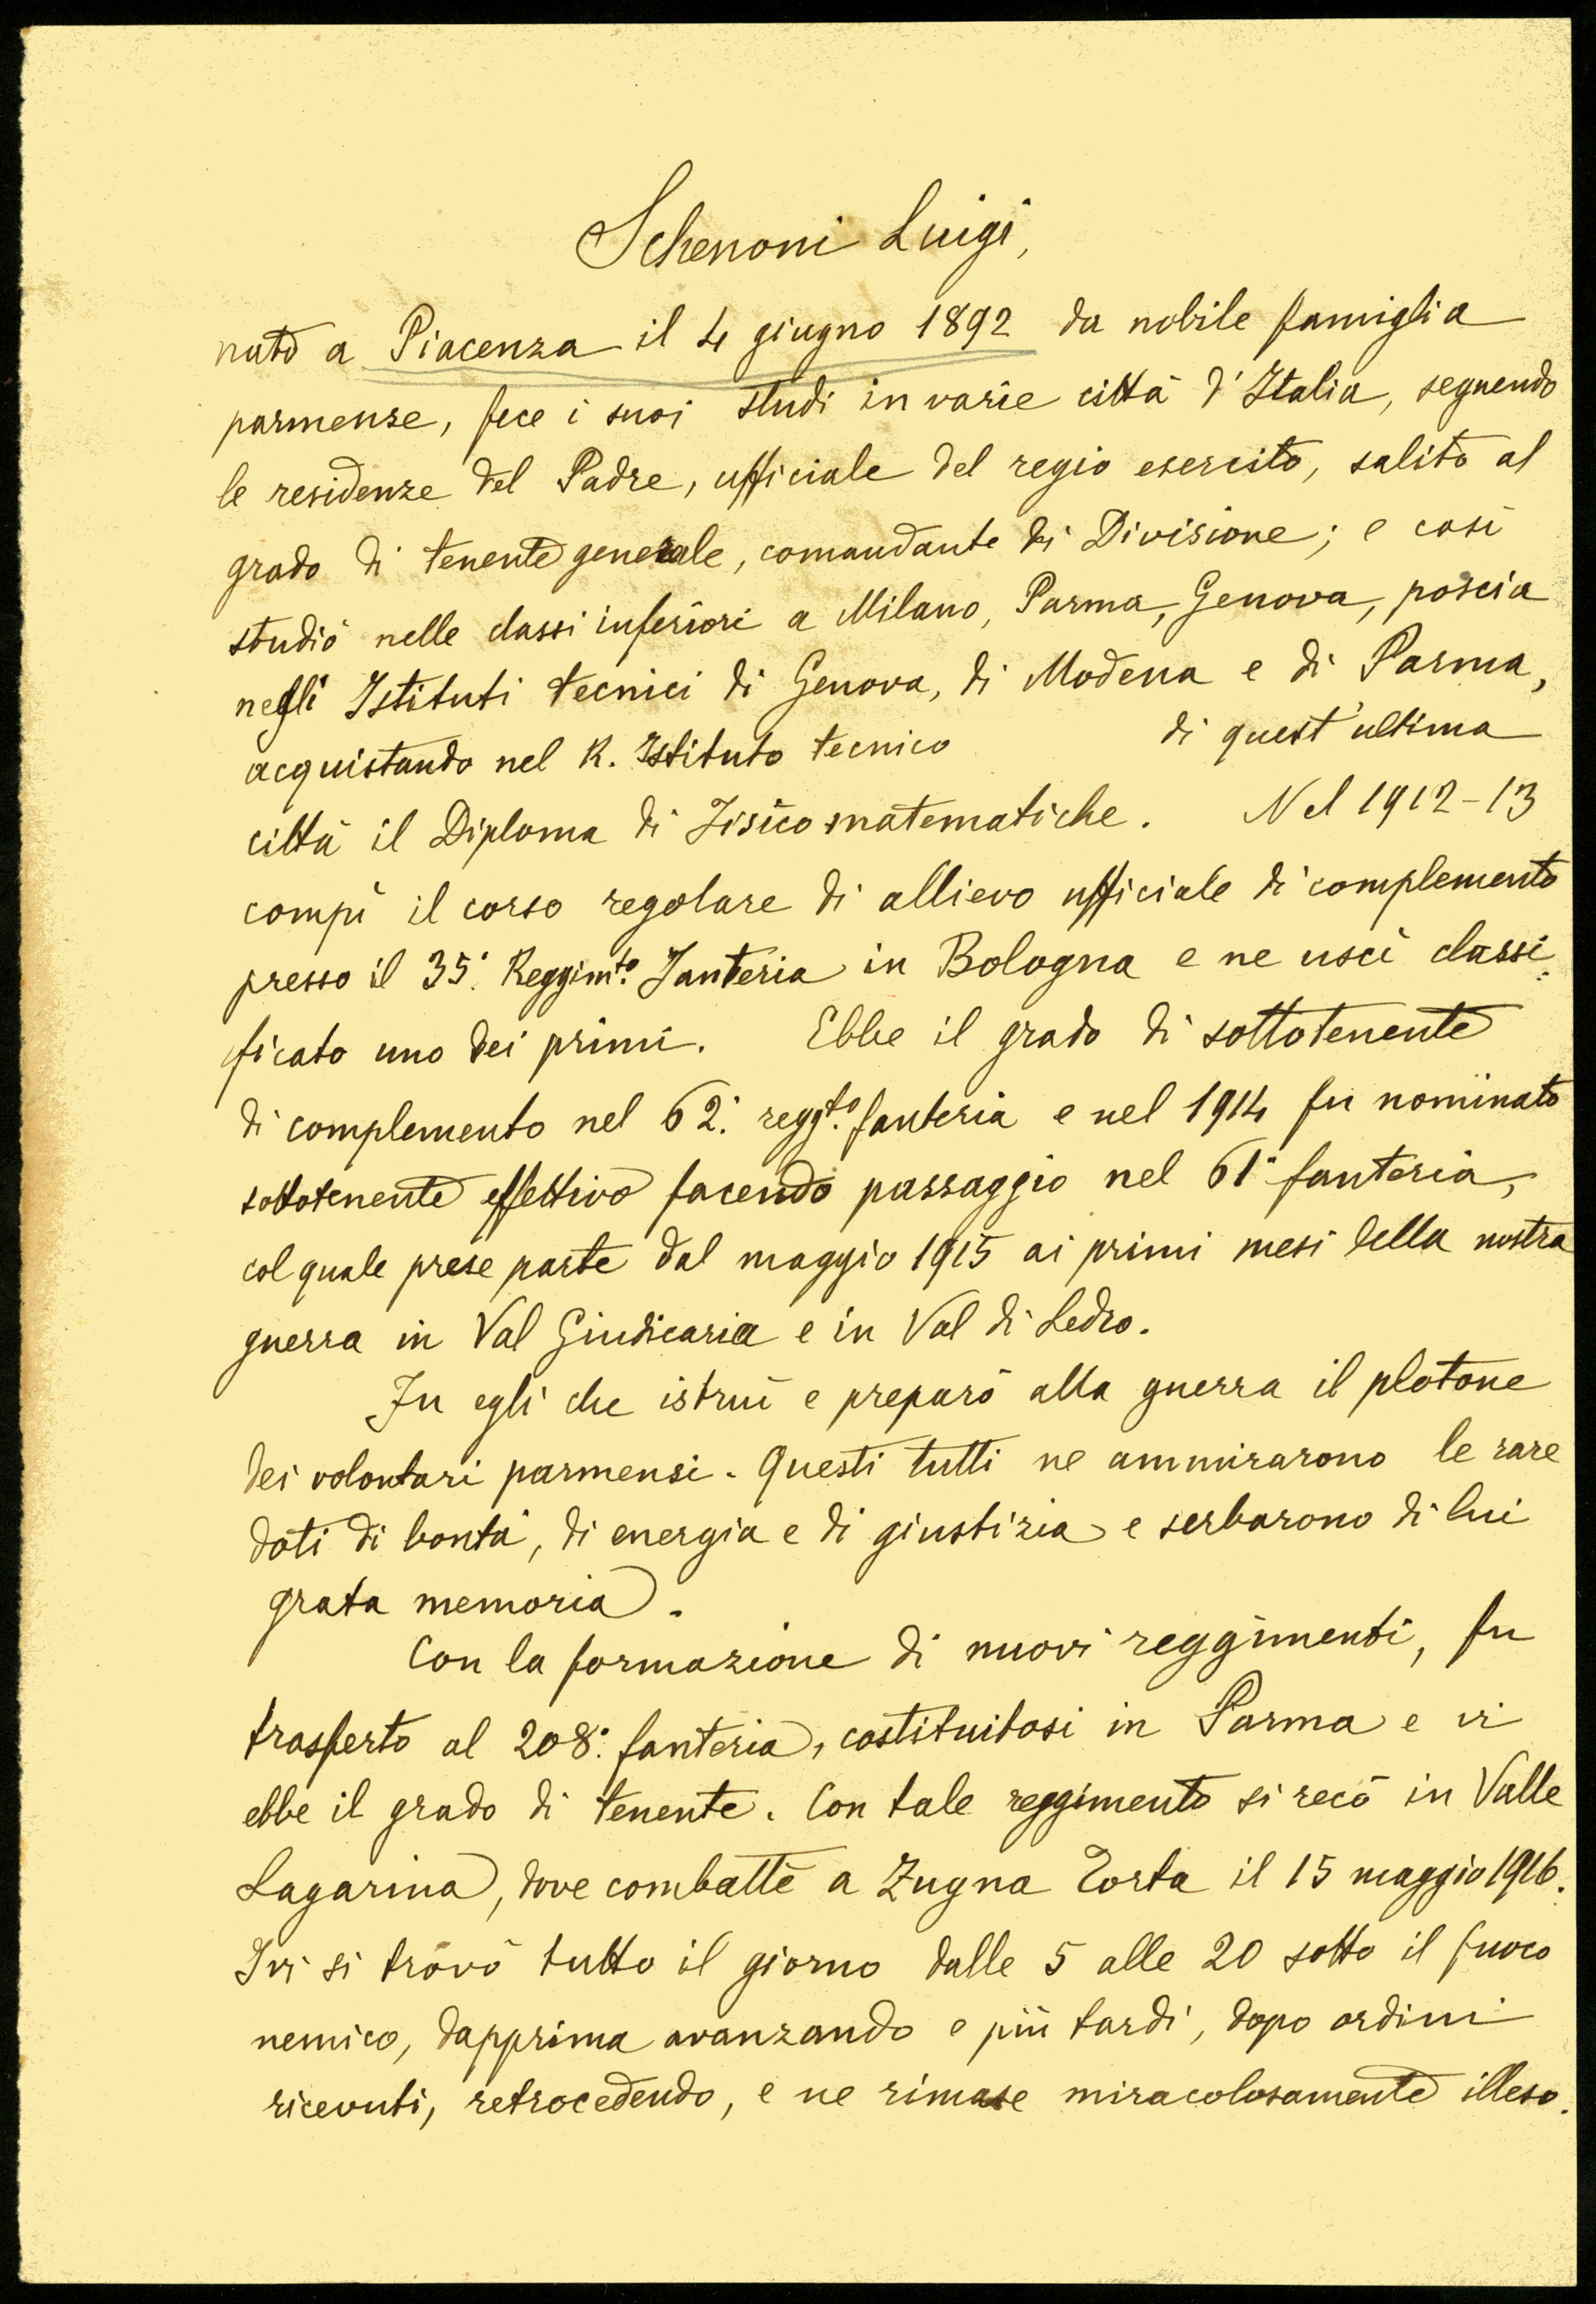 Schenoni Luigi,
nato a Piacenza il 4 giugno 1892 da nobile famiglia
parmense, fece i suoi studi in varie città d'Italia, seguendo
le residenze del Padre, ufficiale del regio esercito, salito al
grado di tenente generale, comandante di Divisione; e così
studiò nelle classi inferiori a Milano, Parma, Genova, poscia
negli Istituti tecnici di Genova, di Modena e di Parma,
acquistando nel R. Istituto tecnico di quest'ultima
città il Diploma di Fisico matematiche. Nel 1912-13
compì il corso regolare di allievo ufficiale di complemento
presso il 35° Reggimto. Fanteria in Bologna e ne uscì classi
ficato uno dei primi. Ebbe il grado di sottotenente
di complemento nel 62° reggto. fanteria e nel 1914 fu nominato
sottotenente effettivo facendo passaggio nel 61° fanteria,
col quale prese parte dal maggio 1915 ai primi mesi della nostra
guerra in Val Giudicaria e in Val di Ledro.
Fu egli che istruì e preparò alla guerra il plotone
dei volontari parmensi. Questi tutti ne ammirarono le rare
doti di bontà, di energia e di giustizia e serbarono di lui
grata memoria.
Con la formazione di nuovi reggimenti, fu
trasferto al 208° fanteria, costituitosi in Parma e vi
ebbe il grado di tenente. Con tale reggimento si recò in Valle
Lagarina, dove combattè a Zugna Torta il 15 maggio 1916.
Ivi si trovò tutto il giorno dalle 5 alle 20 sotto il fuoco
nemico, dapprima avanzando e più tardi, dopo ordini
ricevuti, retrocedendo, e ne rimase miracolosamente illeso.